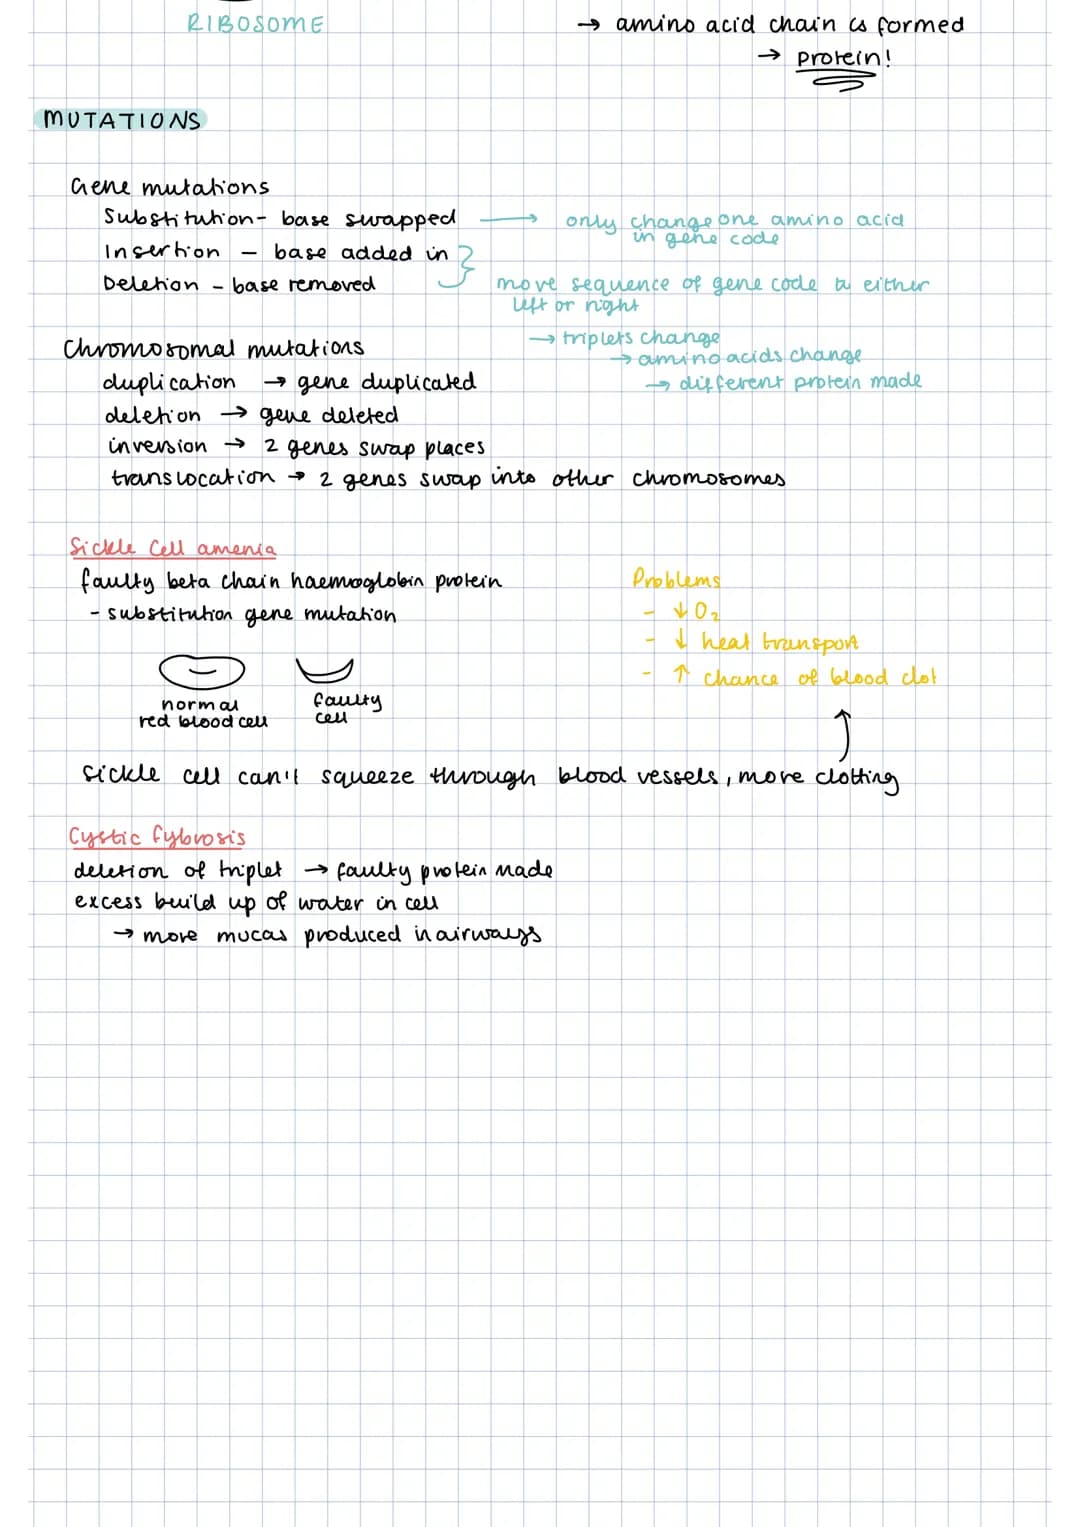 RIBOSOME
→ amino acid chain is formed
→ protein!
MUTATIONS
Gene mutations
Substitution- base swapped → only change one amino acid
in gene code
Insertion - base added in
Deletion - base removed
move sequence of gene code to either
left or right
→ triplets change
→ amino acids change
→ different protein made
Chromosomal mutations
duplication → gene duplicated
deletion → gene deleted
inversion → 2 genes swap places
translocation → 2 genes swap into other chromosomes
Sickle Cell amenia
faulty beta chain haemoglobin protein
- substitution gene mutation
normal
red blood cell
faulty
cell
Problems
- ↓ O₂
- ↓ heat transport
- ↑ chance of blood clot
sickle cell can't squeeze through blood vessels, more clotting
Cystic fybrosis
deletion of triplet → faulty protein made
excess build up of water in cell
→ more mucas produced in airways